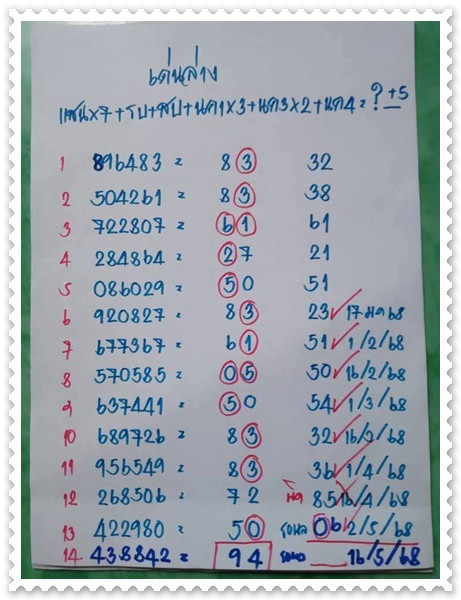 เด่นล่าง
แสนx7+รบ+สบ+นค1x3+นค3x2+นค4= ? +5
1 896483 = 83 32
2 504261 = 83 38
3 722807 = 61 61
4 284864 = 27 21
5 086029 = 50 51
6 920827 = 83 23 ✓ 17 มค 68
7 677367 = 61 51 ✓ 1/2/68
8 570585 = 05 50 ✓ 16/2/68
9 637441 = 50 54 ✓ 1/3/68
10 689726 = 83 32 ✓ 16/3/68
11 956549 = 83 36 ✓ 1/4/68
12 268506 = 72 ผิด 85 16/4/68
13 422980 = 50 06 ✓ 2/5/68
14. 438842 = 94 16/5/68